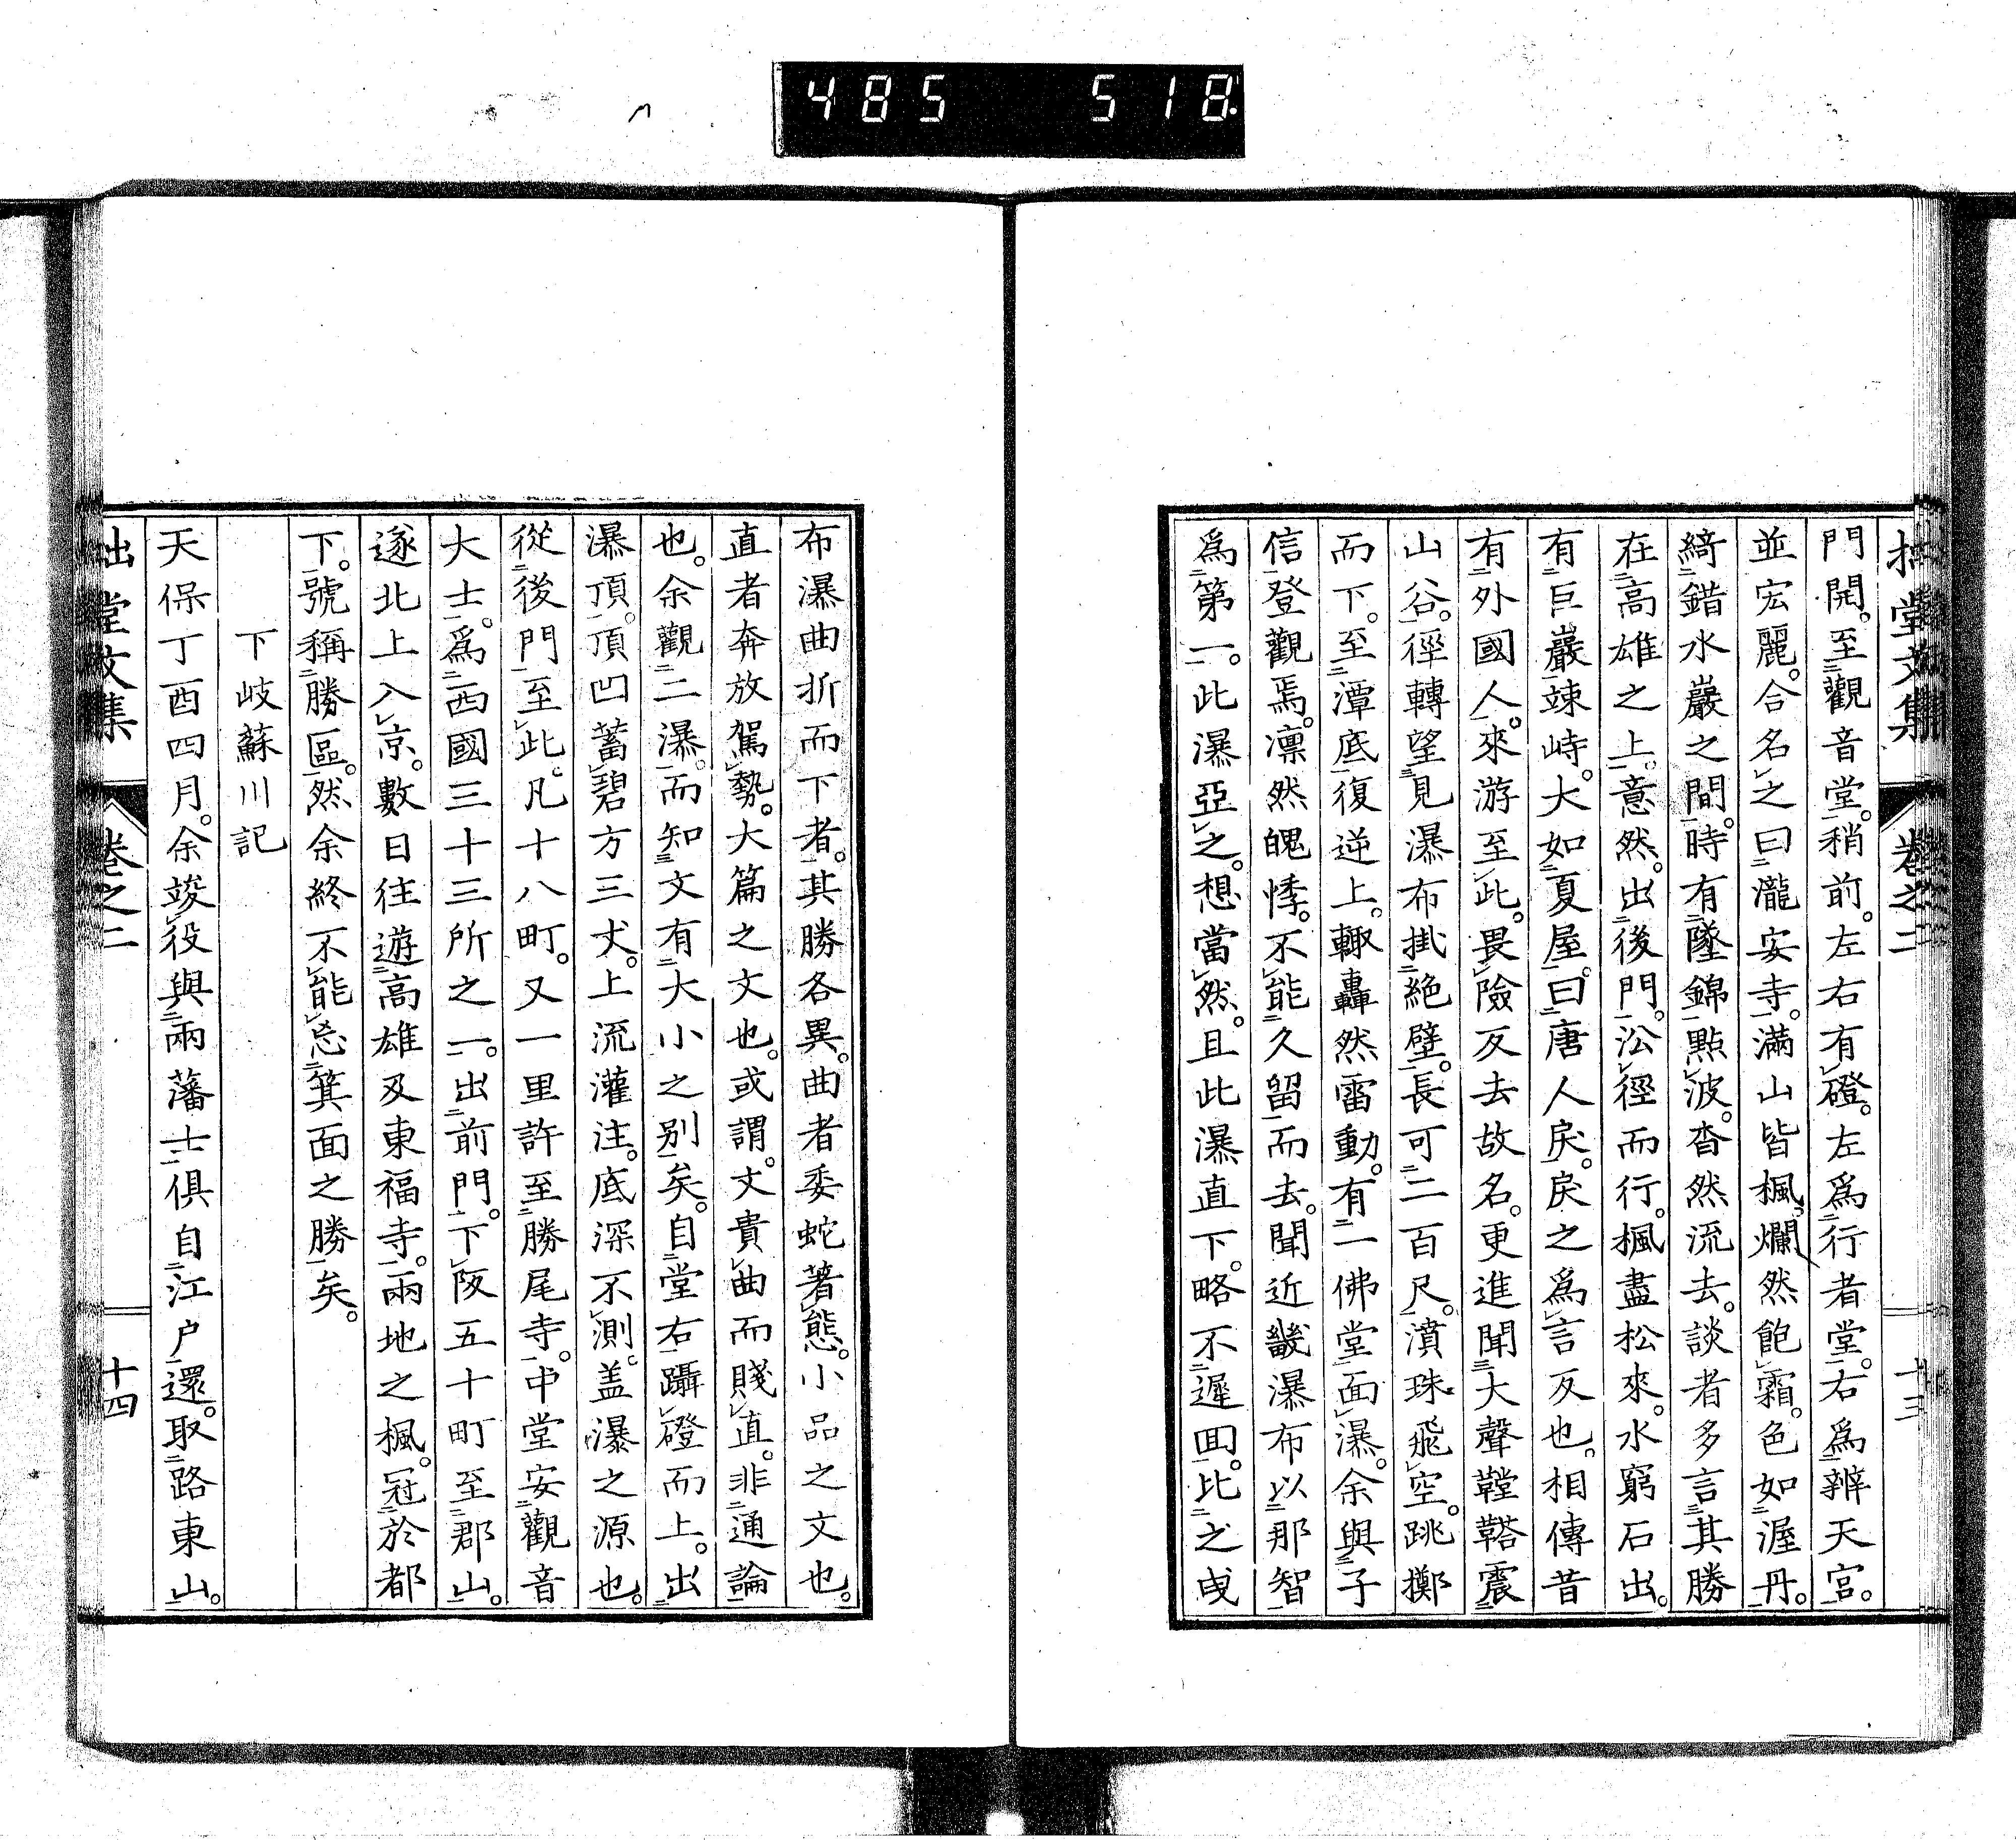 485 518
拙堂文集 卷之二 十三
門開。至觀音堂。稍前。左右有磴。左爲行者堂。右爲辨天宮。
並宏麗。合名之曰瀧安寺。滿山皆楓。爛然飽霜。色如渥丹。
綺錯水巖之間。時有墜錦點波。杳然流去。談者多言其勝
在高雄之上。意然。出後門。沿徑而行。楓盡松來。水窮石出。
有巨巖竦峙。大如夏屋。曰唐人戾。戾之爲言反也。相傳昔
有外國人。來游至此。畏險反去故名。更進聞大聲鞺鞳震
山谷。徑轉望見瀑布掛絕壁。長可二百尺。濆珠飛空。跳擲
而下。至潭底復逆上。輙轟然雷動。有一佛堂面瀑。余與子
信登觀焉。凛然魄悸。不能久留而去。聞近畿瀑布以那智
爲第一。此瀑亞之。想當然。且此瀑直下。略不遲囬。比之曵
布瀑曲折而下者。其勝各異。曲者委蛇著態。小品之文也。
直者奔放駕勢。大篇之文也。或謂。文貴曲而賤直。非通論
也。余觀二瀑。而知文有大小之别矣。自堂右躡磴而上。出
瀑頂。頂凹蓄碧方三丈。上流灌注。底深不測。盖瀑之源也。
從後門至此。凡十八町。又一里許至勝尾寺。中堂安觀音
大士。爲西國三十三所之一。出前門。下阪五十町至郡山。
遂北上入京。數日往遊高雄及東福寺。兩地之楓。冠於都
下。號稱勝區。然余終不能忘箕面之勝矣。
下岐蘇川記
天保丁酉四月。余竣役與兩藩士俱自江户還。取路東山。
拙堂文集 卷之二 十四